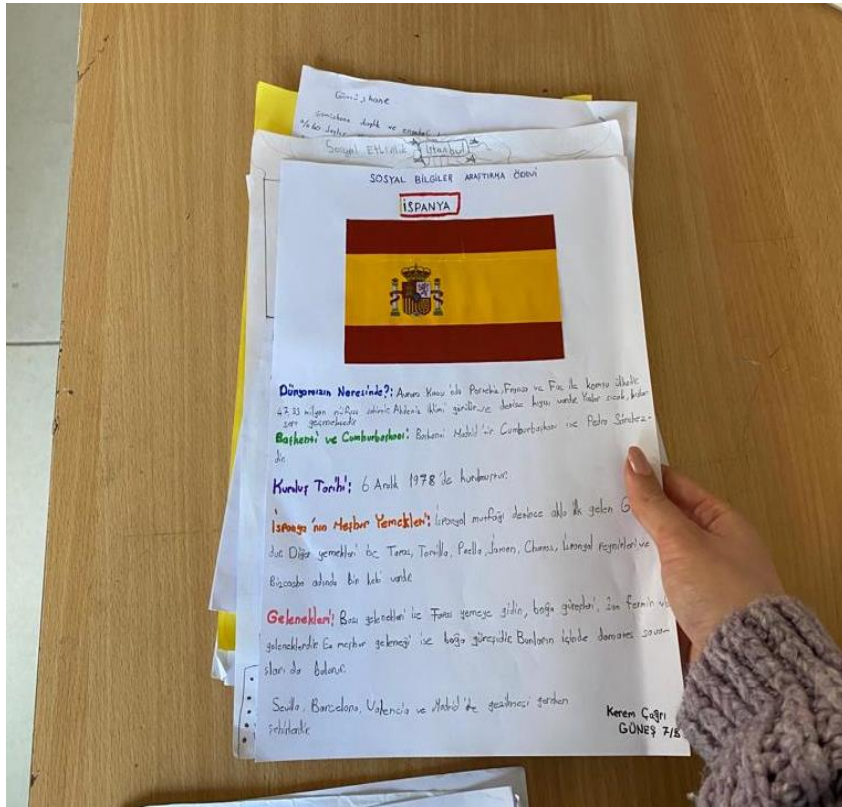 Gümüşhane
Gümüşhane dağlık ve engebeli
Sosyal Etkinlik İstanbul
SOSYAL BİLGİLER ARAŞTIRMA ÖDEVİ
İSPANYA
Dünyamızın Neresinde?: Avrupa Kıtası'nda Portekiz, Fransa ve Fas ile komşu ülkedir.
47,33 milyon nüfusa sahiptir. Akdeniz iklimi görülür ve denize kıyısı vardır. Yazlar sıcak, kışlar
sert geçmektedir.
Başkenti ve Cumhurbaşkanı: Başkenti Madrid'dir. Cumhurbaşkanı ise Pedro Sánchez-
dir.
Kuruluş Tarihi: 6 Aralık 1978'de kurulmuştur.
İspanya'nın Meşhur Yemekleri: İspanyol mutfağı denince akla ilk gelen G
dur. Diğer yemekleri ise Tapas, Tortilla, Paella, Jamon, Churros, İspanyol peynirleri ve
adında bir keki vardır.
Gelenekleri: Bazı gelenekleri ise Tapas yemeye gidin, boğa güreşleri, San Fermin
geleneklerdir. En meşhur geleneği ise boğa güreşidir. Bunların içinde domates savaş-
ları da bulunur.
Sevilla, Barcelona, Valencia ve Madrid'de gezilmesi gereken
şehirlerdir.
Kerem Çağrı
GÜNEŞ 7/B